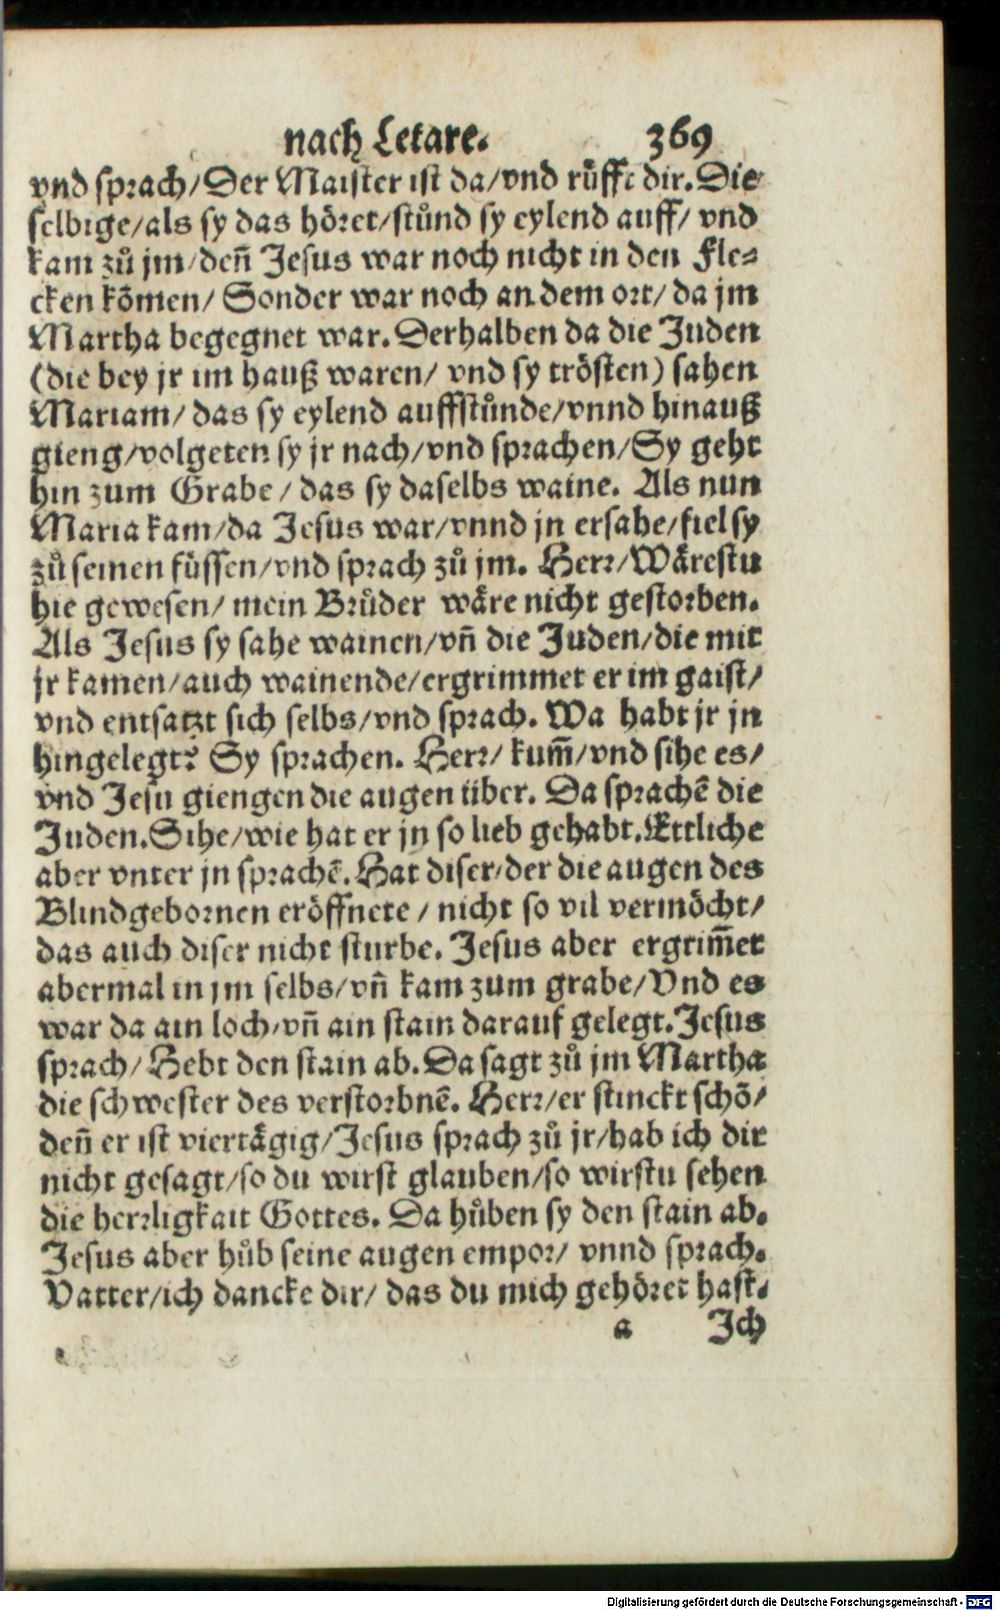 nach Letare. 369
vnd sprach/Der Maister ist da/vnd rüffe dir. Die
selbige/als sy das höret/stůnd sy eylend auff/ vnd
kam zů jm/deñ Jesus war noch nicht in den Fle⸗
cken kōmen/ Sonder war noch an dem ort/ da jm
Martha begegnet war. Derhalben da die Juden
(die bey jr im hauß waren/ vnd sy trösten) sahen
Mariam/ das sy eylend auffstůnde/vnnd hinauß
gieng/volgeten sy jr nach/vnd sprachen/Sy geht
hin zum Grabe/ das sy daselbs waine. Als nun
Maria kam/da Jesus war/vnnd jn ersahe/fiel sy
zů seinen füssen/vnd sprach zů jm. Herr/Wärestu
hie gewesen/ mein Brůder wäre nicht gestorben.
Als Jesus sy sahe wainen/vñ die Juden/die mit
jr kamen/auch wainende/ergrimmet er im gaist/
vnd entsatzt sich selbs/vnd sprach. Wa habt jr jn
hingelegt? Sy sprachen. Herr/ kum̃/vnd sihe es/
vnd Jesu giengen die augen über. Da sprachē die
Juden. Sihe/wie hat er jn so lieb gehabt. Ettliche
aber vnter jn sprachē. Hat diser/der die augen des
Blindgebornen eröffnete/ nicht so vil vermöcht/
das auch diser nicht sturbe. Jesus aber ergrim̃et
abermal in jm selbs/vñ kam zum grabe/Vnd es
war da ain loch/vñ ain stain darauf gelegt. Jesus
sprach/ Hebt den stain ab. Da sagt zů jm Martha
die schwester des verstorbnē. Herr/er stinckt schō/
deñ er ist viertägig/Jesus sprach zů jr/hab ich dir
nicht gesagt/so du wirst glauben/so wirstu sehen
die herrligkait Gottes. Da hůben sy den stain ab.
Jesus aber hůb seine augen empor/ vnnd sprach.
Vatter/ich dancke dir/ das du mich gehöret hast.
a Ich
Digitalisierung gefördert durch die Deutsche Forschungsgemeinschaft - DFG